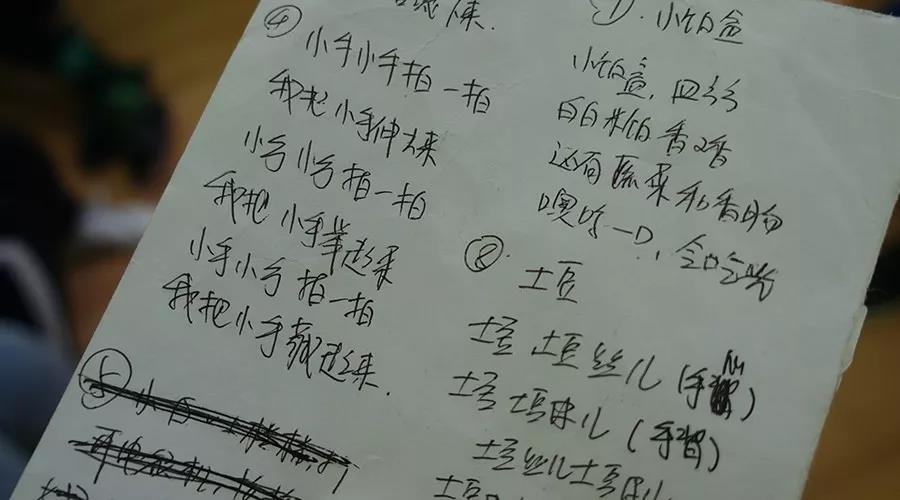 来.
④
小手小手拍一拍
我把小手伸出来
小手小手拍一拍
我把小手举起来
小手小手拍一拍
我把小手藏起来.
⑤
小饭盒
小饭盒, 四方方
白白米饭香喷喷
还有蔬菜和香肠
噢呜一口, 全吃光
⑧.
土豆
土豆 土豆 丝儿 (手
土豆 土豆 球儿 (手背)
土豆丝儿土豆球儿
土豆